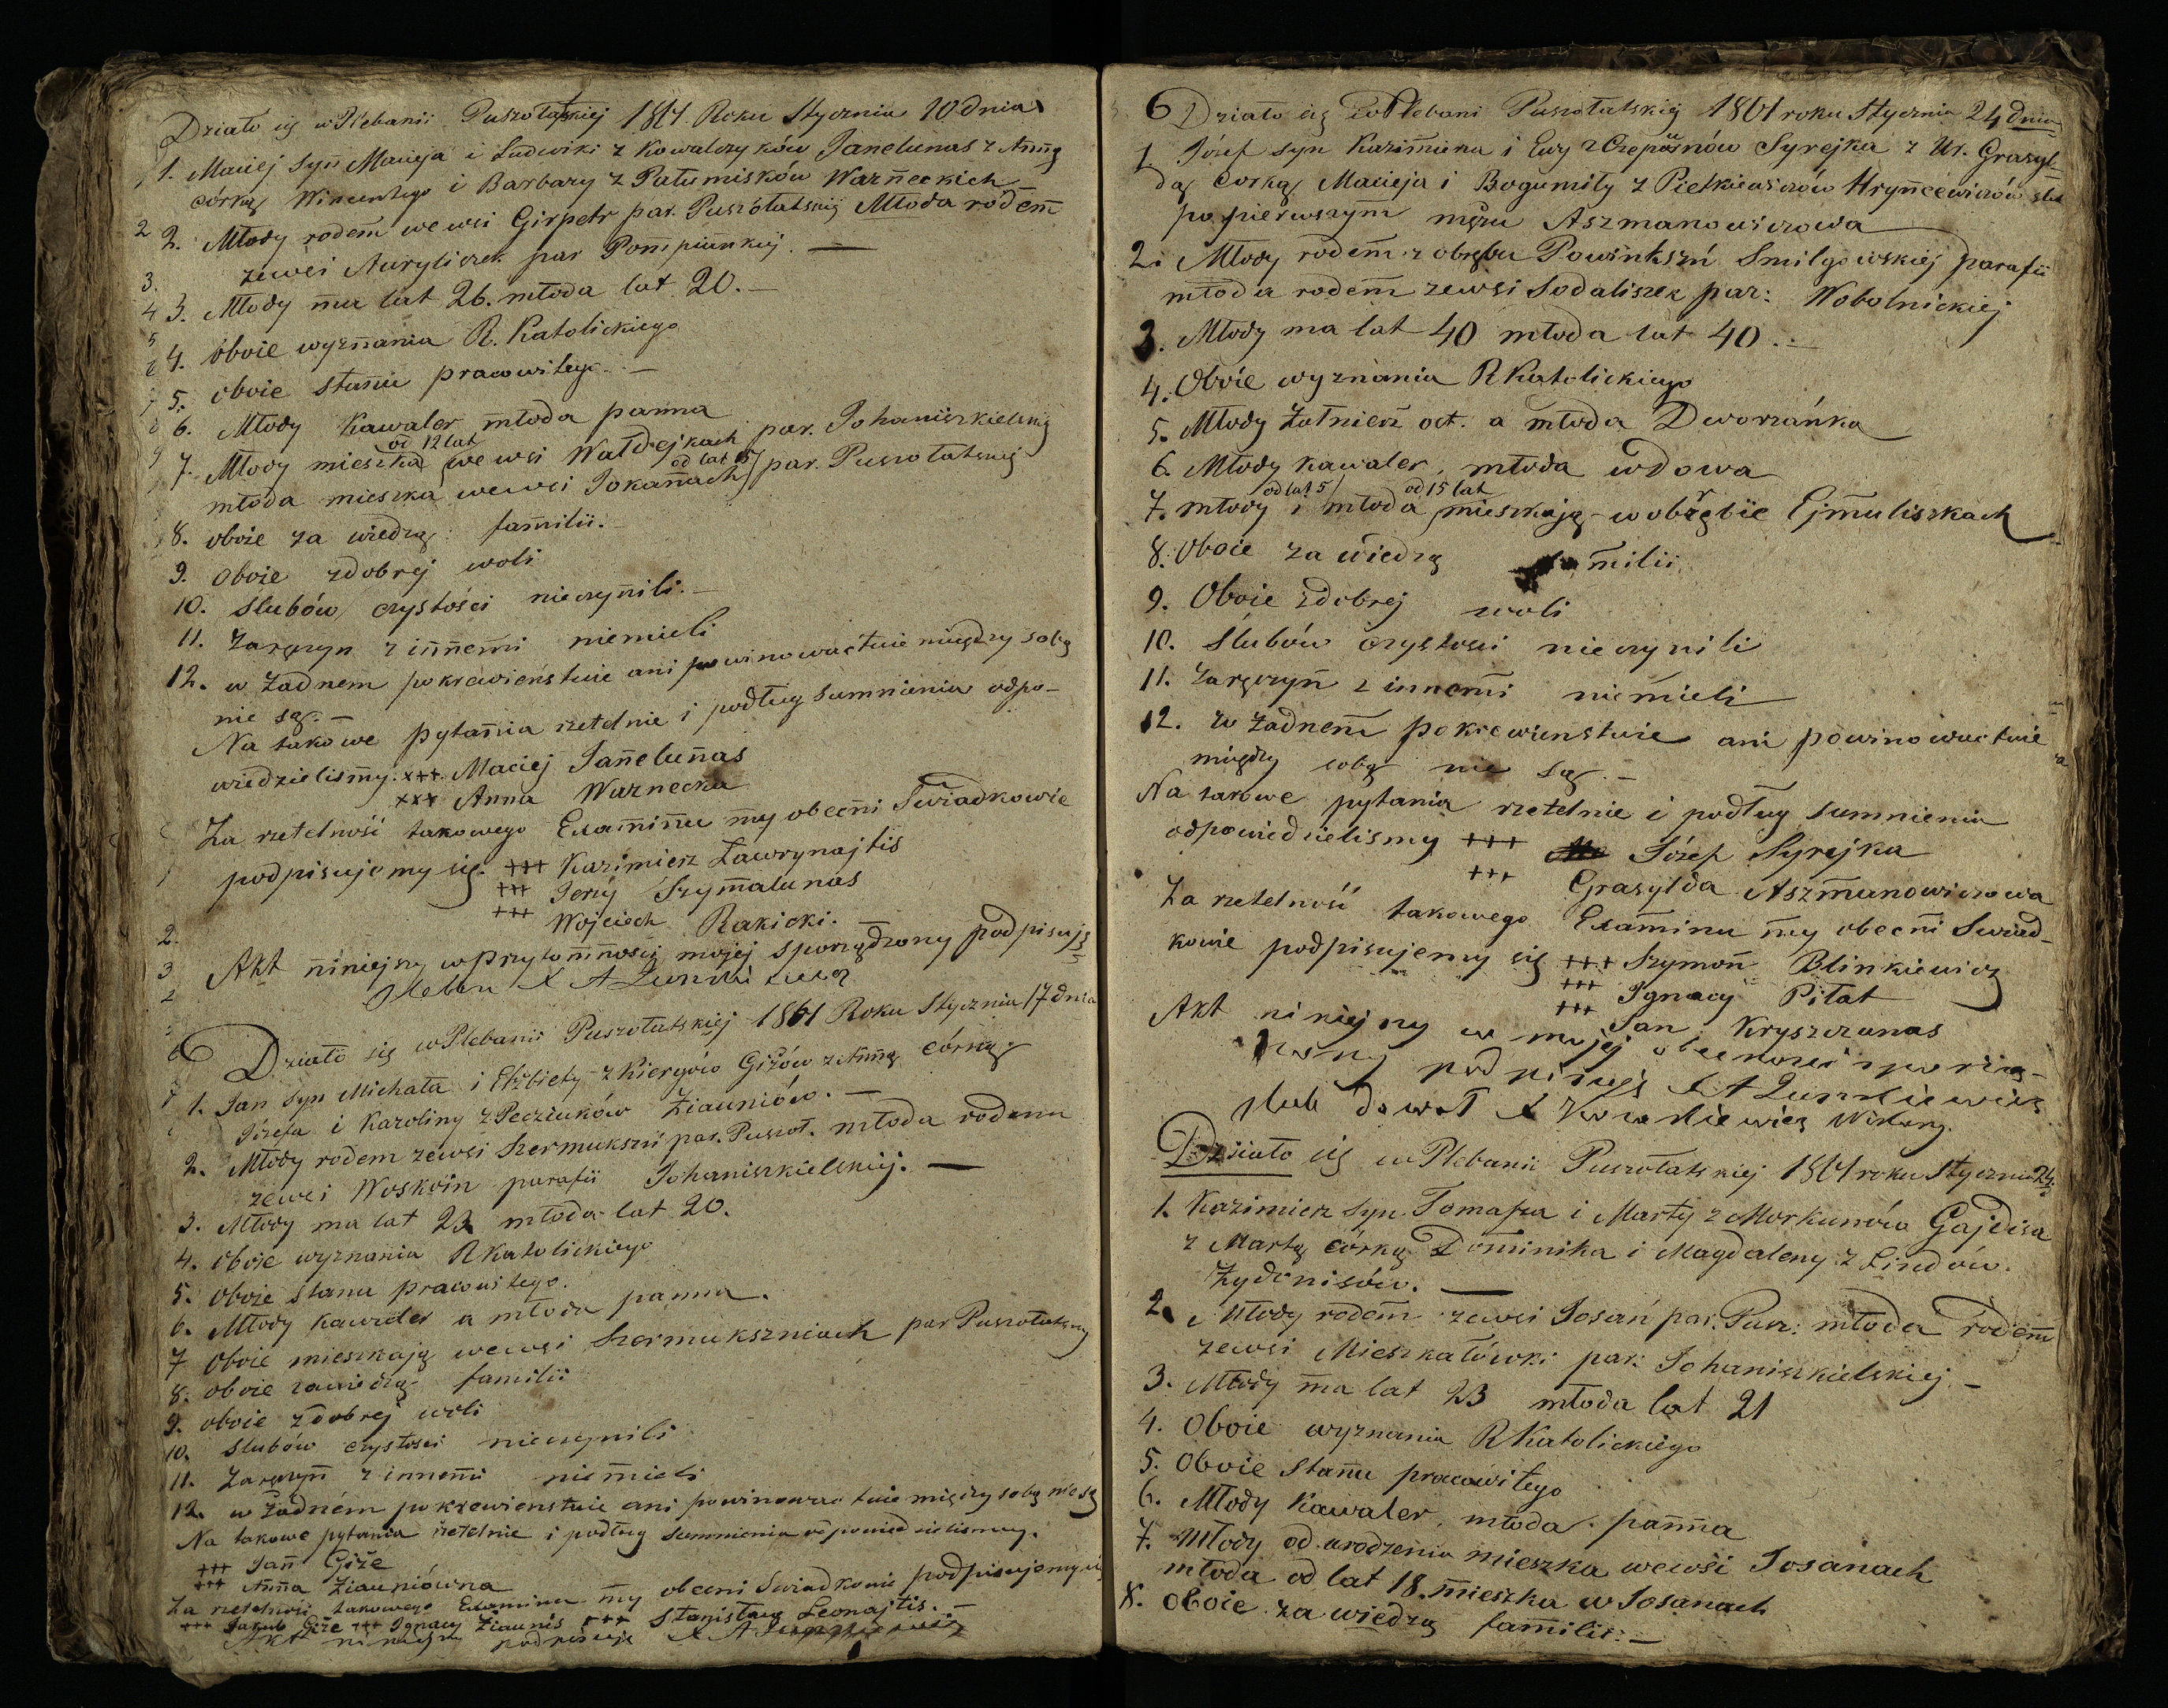 Działo się w Plebanii Puszołatskiej 1861 Roku Stycznia 10 dnia
1. Maciej Syn Macieja i Ludwiki z Kowalczyków Janelunas z Anną
córką Wincentego i Barbary z Patumisków Warneckich
2. Młody rodem we wsi Girpetr par. Puszołatskiej Młoda rodem
ze wsi Auryliszek par Pompiańskiej. —
3. Młody ma lat 26. młoda lat 20. —
4. oboie wyznania R. Katolickiego
5. oboie stanu pracowitego. —
6. Młody Kawaler młoda panna
7. Młody mieszka od 12 lat we wsi Wałdejkach par. Johaniszkielskiej
młoda mieszka we wsi Jokanach od lat par. Puszołatskiej
8. oboie za wiedzą familii.
9. oboie z dobrej woli
10. Slubów czystości nieczynili. —
11. Zaręczyn z innemi niemieli
12. w żadnem pokrewieństwie ani powinowactwie między sobą
nie są. —
Na takowe pytania rzetelnie i podług sumnienia odpo-
wiedzielismy. +++ Maciej Janelunas
+++ Anna Warnecka
Za rzetelność takowego Examinu my obecni Swiadkowie
podpisujemy się. +++ Kazimierz Ławrynajtis
+++ Jerzy Szymalunas
+++ Wojciech Rakicki. —
Akt niniejszy w przytomności mojej sporządzony podpisuję
Pleban X A
Działo się w Plebanii Puszołatskiej 1861 Roku Stycznia 17 dnia
1. Jan Syn Michała i Elżbiety z Kiergów Giżów z Anną córką
Józefa i Karoliny z Pecziuków Ziauniów. —
2. Młody rodem ze wsi Szermukszń par. Puszoł. młoda rodem
ze wsi Woskoin parafii Johaniszkielskiej. —
3. Młody ma lat 23 młoda lat 20.
4. oboie wyznania R Katolickiego
5. Oboie stanu pracowitego.
6. Młody kawaler a młoda panna.
7 Oboie mieszkają we wsi Szermukszniach par Puszołatskiej
8. oboie za wiedzą familii
9. oboie z dobrej woli
10. slubów czystosci nieczynili
11. Zaręczyn z innemi niemieli
12. w żadném pokrewienstwie ani powinowactwie między sobą nie są
Na takowe pytania rzetelnie i podług sumnienia odpowiedzielismy.
+++ Jan Giże
+++ Anna Ziauniówna
Za rzetelność takowego Examinu my obecni Swiadkowie podpisujemy się
+++ Jakub Giże +++ Ignacy Ziaunis +++ Stanisław Leonajtis. —
Akt niniejszy podpisuję X A
6 Działo się w Plebani Puszołatskiej 1861 roku Stycznia 24 dnia
1. Józef syn Kazimiera i Ewy z Czepunów Syrejka z Ur. Grasyl-
dą córką Macieja i Bogumiły z Pietkiewiczów Hryncewiczów
po pierwszym mężu Aszmanowiczowa
2. Młody rodem z obrębu Powinkszń Smilgowskiej parafii
młoda rodem ze wsi Sodaliszek par: Wobolnickiej
3. Młody ma lat 40 młoda lat 40. —
4. Oboie wyznania R Katolickiego
5. Młody Żołnierz ost. a młoda Dworzanka
6. Młody kawaler, młoda wdowa
7. młody od lat 5 i młoda od 15 lat mieszkają w obrębie Ejmuliszkach
8. Oboie za wiedzą familii
9. Oboie z dobrej woli
10. Slubów czystosci nieczynili
11. Zaręczyn z innemi niemieli
12. w żadnem pokrewienstwie ani powinowactwie
między sobą nie są. —
Na takowe pytania rzetelnie i podług sumnienia
odpowiedzielismy +++ Józef Syrejka
+++ Grasylda Aszmanowiczowa
Za rzetelność takowego Examinu my obecni Swiad-
kowie podpisujemy się +++ Szymon Blinkiewicz
+++ Ignacy Piłat
+++ Jan Kryszczunas
Akt niniejszy w mojej obecnosci sporzą-
dzony podpisuję X A
slub dawał X
Działo się w Plebanii Puszołatskiej 1861 roku Stycznia 24
1. Kazimierz Syn Tomasza i Marty z Morkunów Gajdisa
z Martą córką Dominika i Magdaleny z Lindów.
Żydonisów. —
2. Młody rodem ze wsi Josań par. Pusz: młoda rodem
ze wsi Mieszkałówki par: Johaniszkielskiej. —
3. Młody ma lat 23 młoda lat 21
4. Oboie wyznania R Katolickiego
5. Oboie stanu pracowitego
6. Młody Kawaler, młoda panna
7. Młody od urodzenia mieszka we wsi Josanach
młoda od lat 18. mieszka w Josanach
8. Oboie za wiedzą familii. —